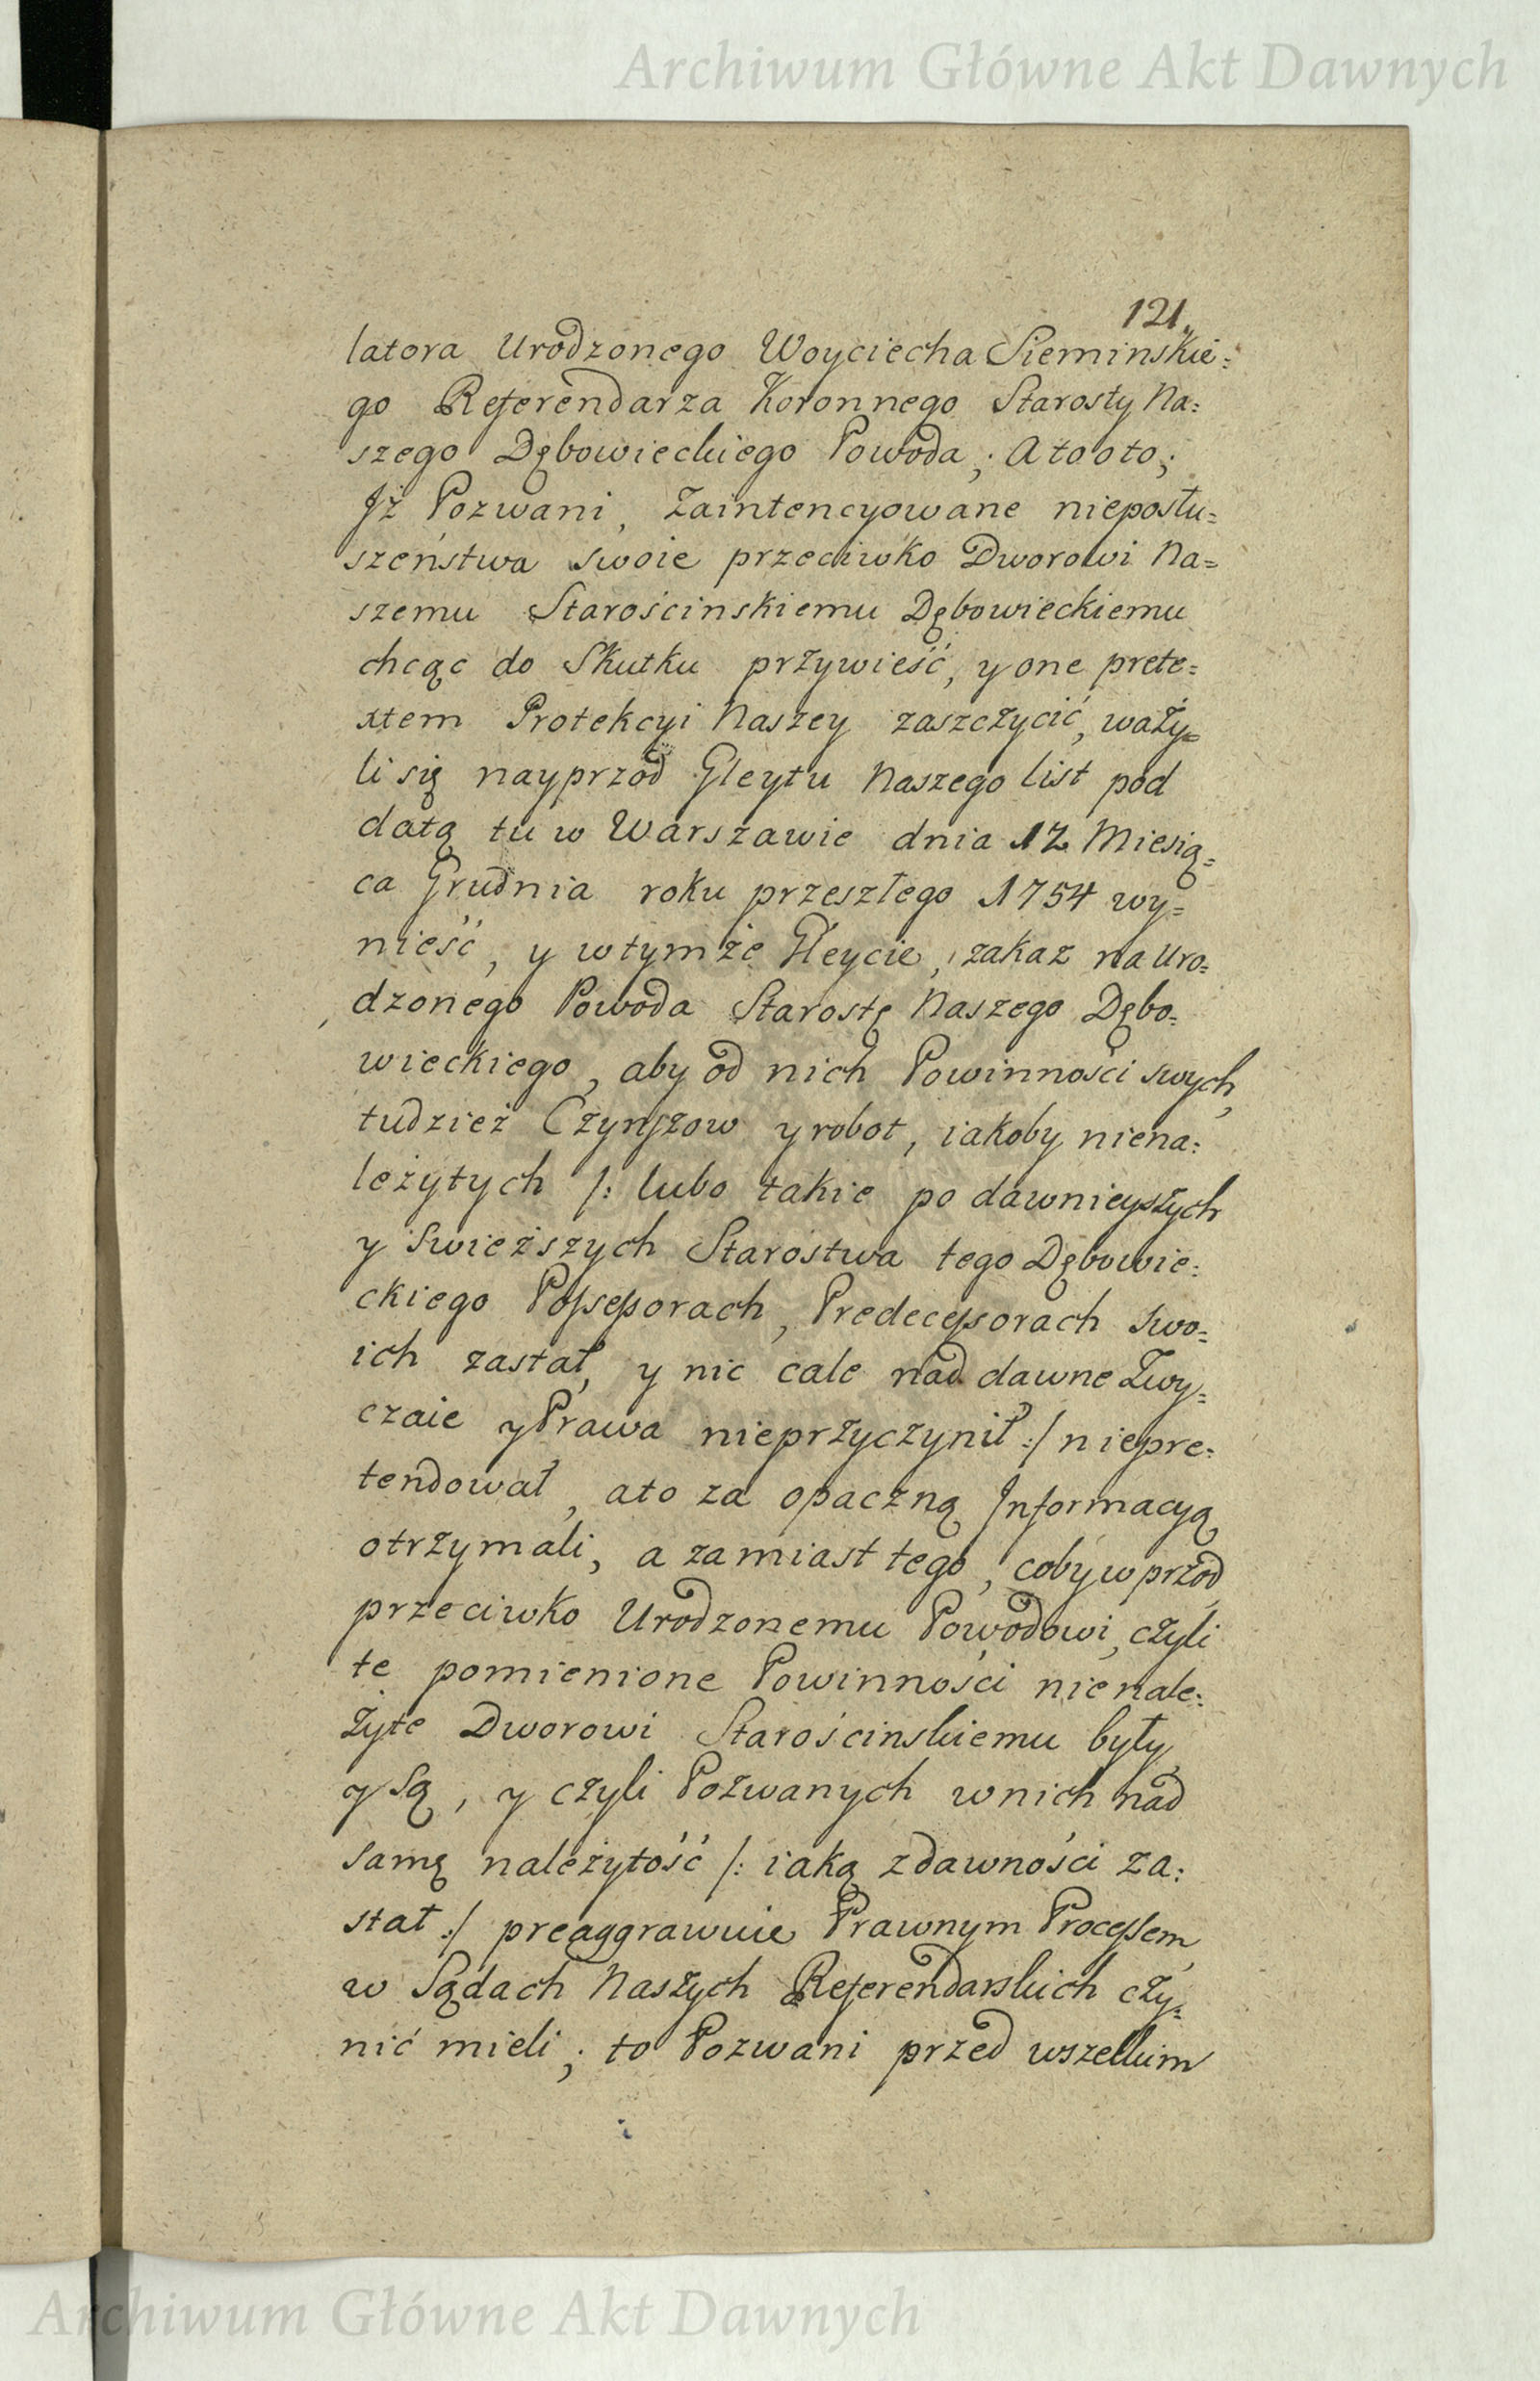 Archiwum Główne Akt Dawnych
121.
latora Urodzonego Woyciecha Sieminskie:
go Referendarza Koronnego Starosty Na:
szego Dębowieckiego Powoda; A to o to;
Iż Pozwani, Zaintencyowane nieposłu=
szeństwa swoie przeciwko Dworowi Na=
szemu Starościnskiemu Dębowieckiemu
chcąc do Skutku przywieść, y one prete=
xtem Protekcyi Naszey zaszczycić, waży=
li się nayprzod Gleytu Naszego list pod
datą tu w Warszawie dnia 12 Miesią=
ca Grudnia roku przeszłego 1754 wy=
nieść, y w tymże Gleycie, zakaz na Uro=
dzonego Powoda Starostę Naszego Dębo=
wieckiego, aby od nich Powinności swych,
tudzież Czynszow y robot, iakoby niena:
leżytych /: lubo takie po dawnieyszych
y swieższych Starostwa tego Dębowie:
ckiego Possessorach, Predecessorach swo=
ich zastał, y nic cale nad dawne Zwy=
czaie y Prawa nieprzyczynił :/ niepre:
tendował, a to za opaczną Informacyą
otrzymali, a zamiast tego, coby w przod
przeciwko Urodzonemu Powodowi, czyli
te pomienione Powinności nienale:
żyte Dworowi Starościnskiemu były
y Są, y czyli Pozwanych w nich nad
samę należytość /: iaką zdawności za:
stał :/ preaggrawuie Prawnym Processem
w Sądach Naszych Referendarskich czy:
nić mieli; to Pozwani przed wszelkim
Archiwum Główne Akt Dawnych